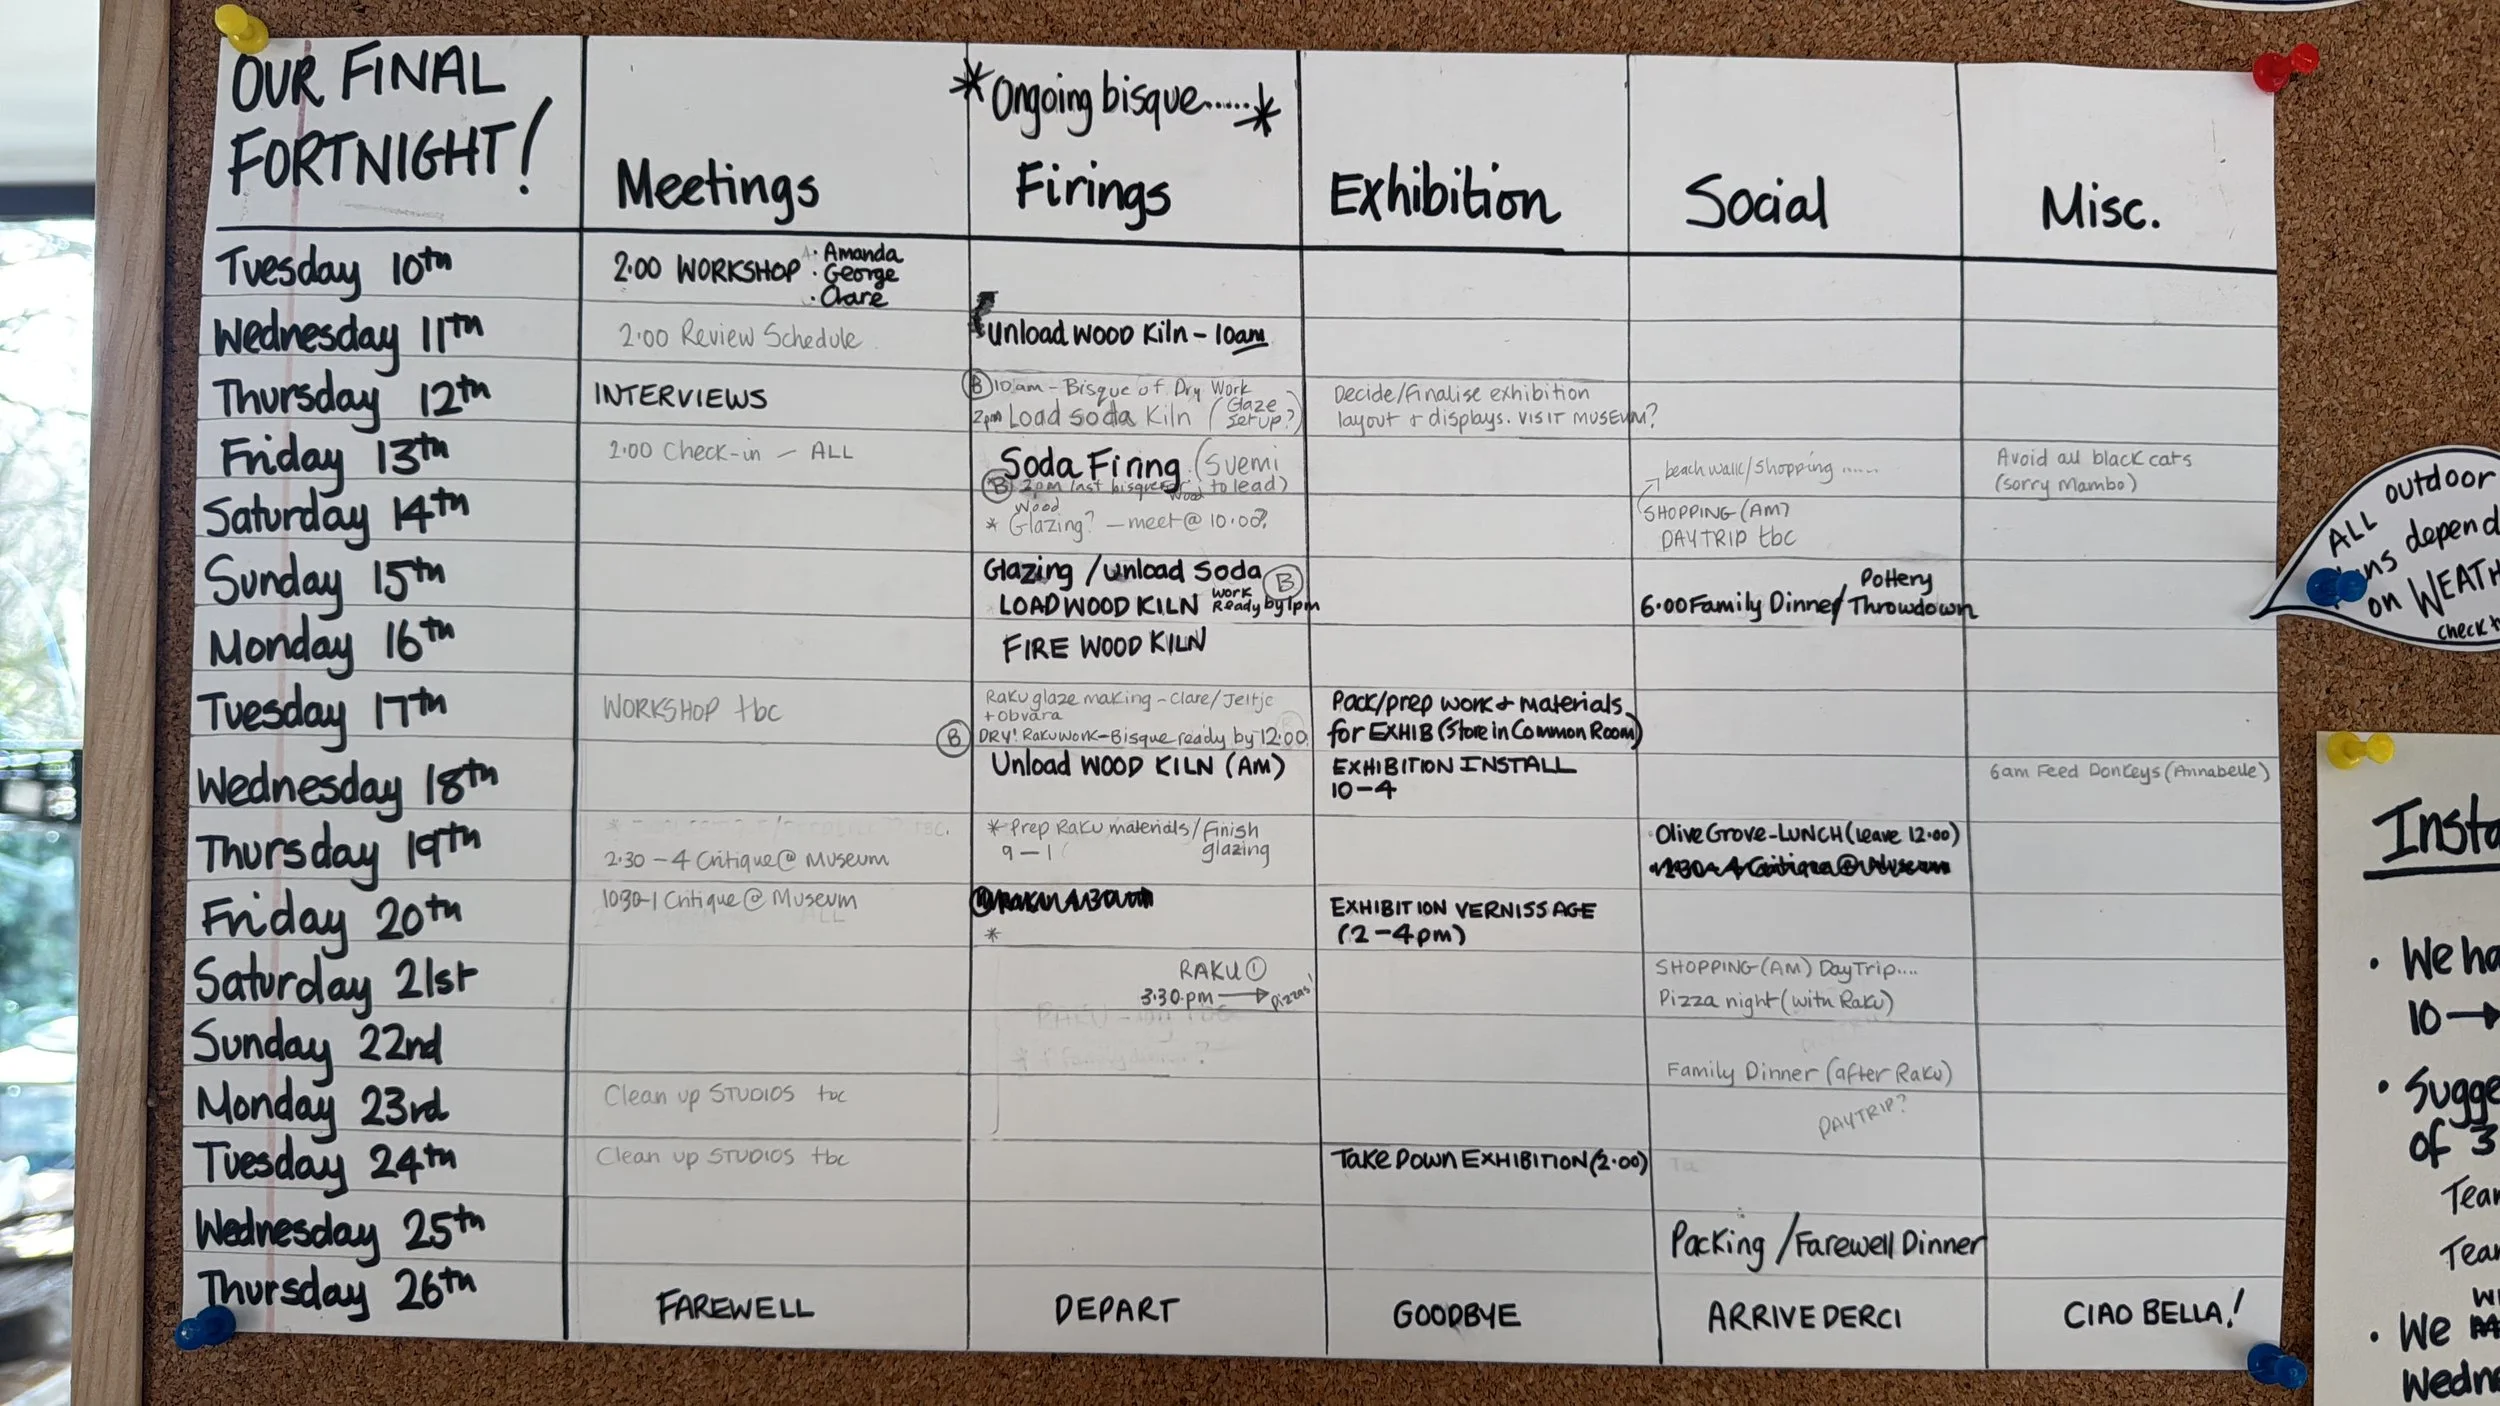 OUR FINAL
FORTNIGHT!
Meetings
*Ongoing bisque......*
Firings
Exhibition
Social
Misc.
Tuesday 10th
2.00 WORKSHOP
· Amanda
· George
· Clare
Wednesday 11th
2.00 Review Schedule
Unload WOOD Kiln - 10am
Thursday 12th
INTERVIEWS
B 10am - Bisque of Dry Work
2pm Load Soda Kiln (Glaze
Set up?)
Decide/Finalise exhibition
layout + displays. VISIT MUSEUM?
Friday 13th
2.00 Check-in - ALL
Soda Firing (Svemi
to lead)
B 2pm last bisque
Wood
beach walk/shopping .....
Avoid all black cats
(sorry Mambo)
Saturday 14th
Wood
* Glazing? - meet @ 10.00?
SHOPPING (AM)
DAYTRIP tbc
Sunday 15th
Glazing / unload Soda B
LOAD WOOD KILN work
Ready by 1pm
6.00 Family Dinner / Pottery
Throwdown
Monday 16th
FIRE WOOD KILN
Tuesday 17th
WORKSHOP tbc
Raku glaze making - Clare/Jeltje
+ obvara
B DRY! Raku work - Bisque ready by 12.00
Pack/prep work + materials
for EXHIB (Store in Common Room)
Wednesday 18th
Unload WOOD KILN (AM)
EXHIBITION INSTALL
10 - 4
6am Feed Donkeys (Annabelle)
Thursday 19th
2.30 - 4 Critique @ Museum
* Prep Raku materials / Finish
glazing
9 - 1
Olive Grove - LUNCH (leave 12.00)
Friday 20th
1030-1 Critique @ Museum
*
EXHIBITION VERNISSAGE
(2 - 4pm)
Saturday 21st
RAKU ①
3.30.pm → Pizzas!
SHOPPING (AM) Day Trip....
Pizza night (with Raku)
Sunday 22nd
Family Dinner (after Raku)
Monday 23rd
Clean up STUDIOS tbc
DAYTRIP?
Tuesday 24th
Clean up STUDIOS tbc
Take Down EXHIBITION (2.00)
Wednesday 25th
Packing / Farewell Dinner
Thursday 26th
FAREWELL
DEPART
GOODBYE
ARRIVEDERCI
CIAO BELLA!
ALL outdoor
depend
on WEATH
check
Insta
· We ha
10 →
· Sugge
of 3
Tea
Tea
· We
Wedn